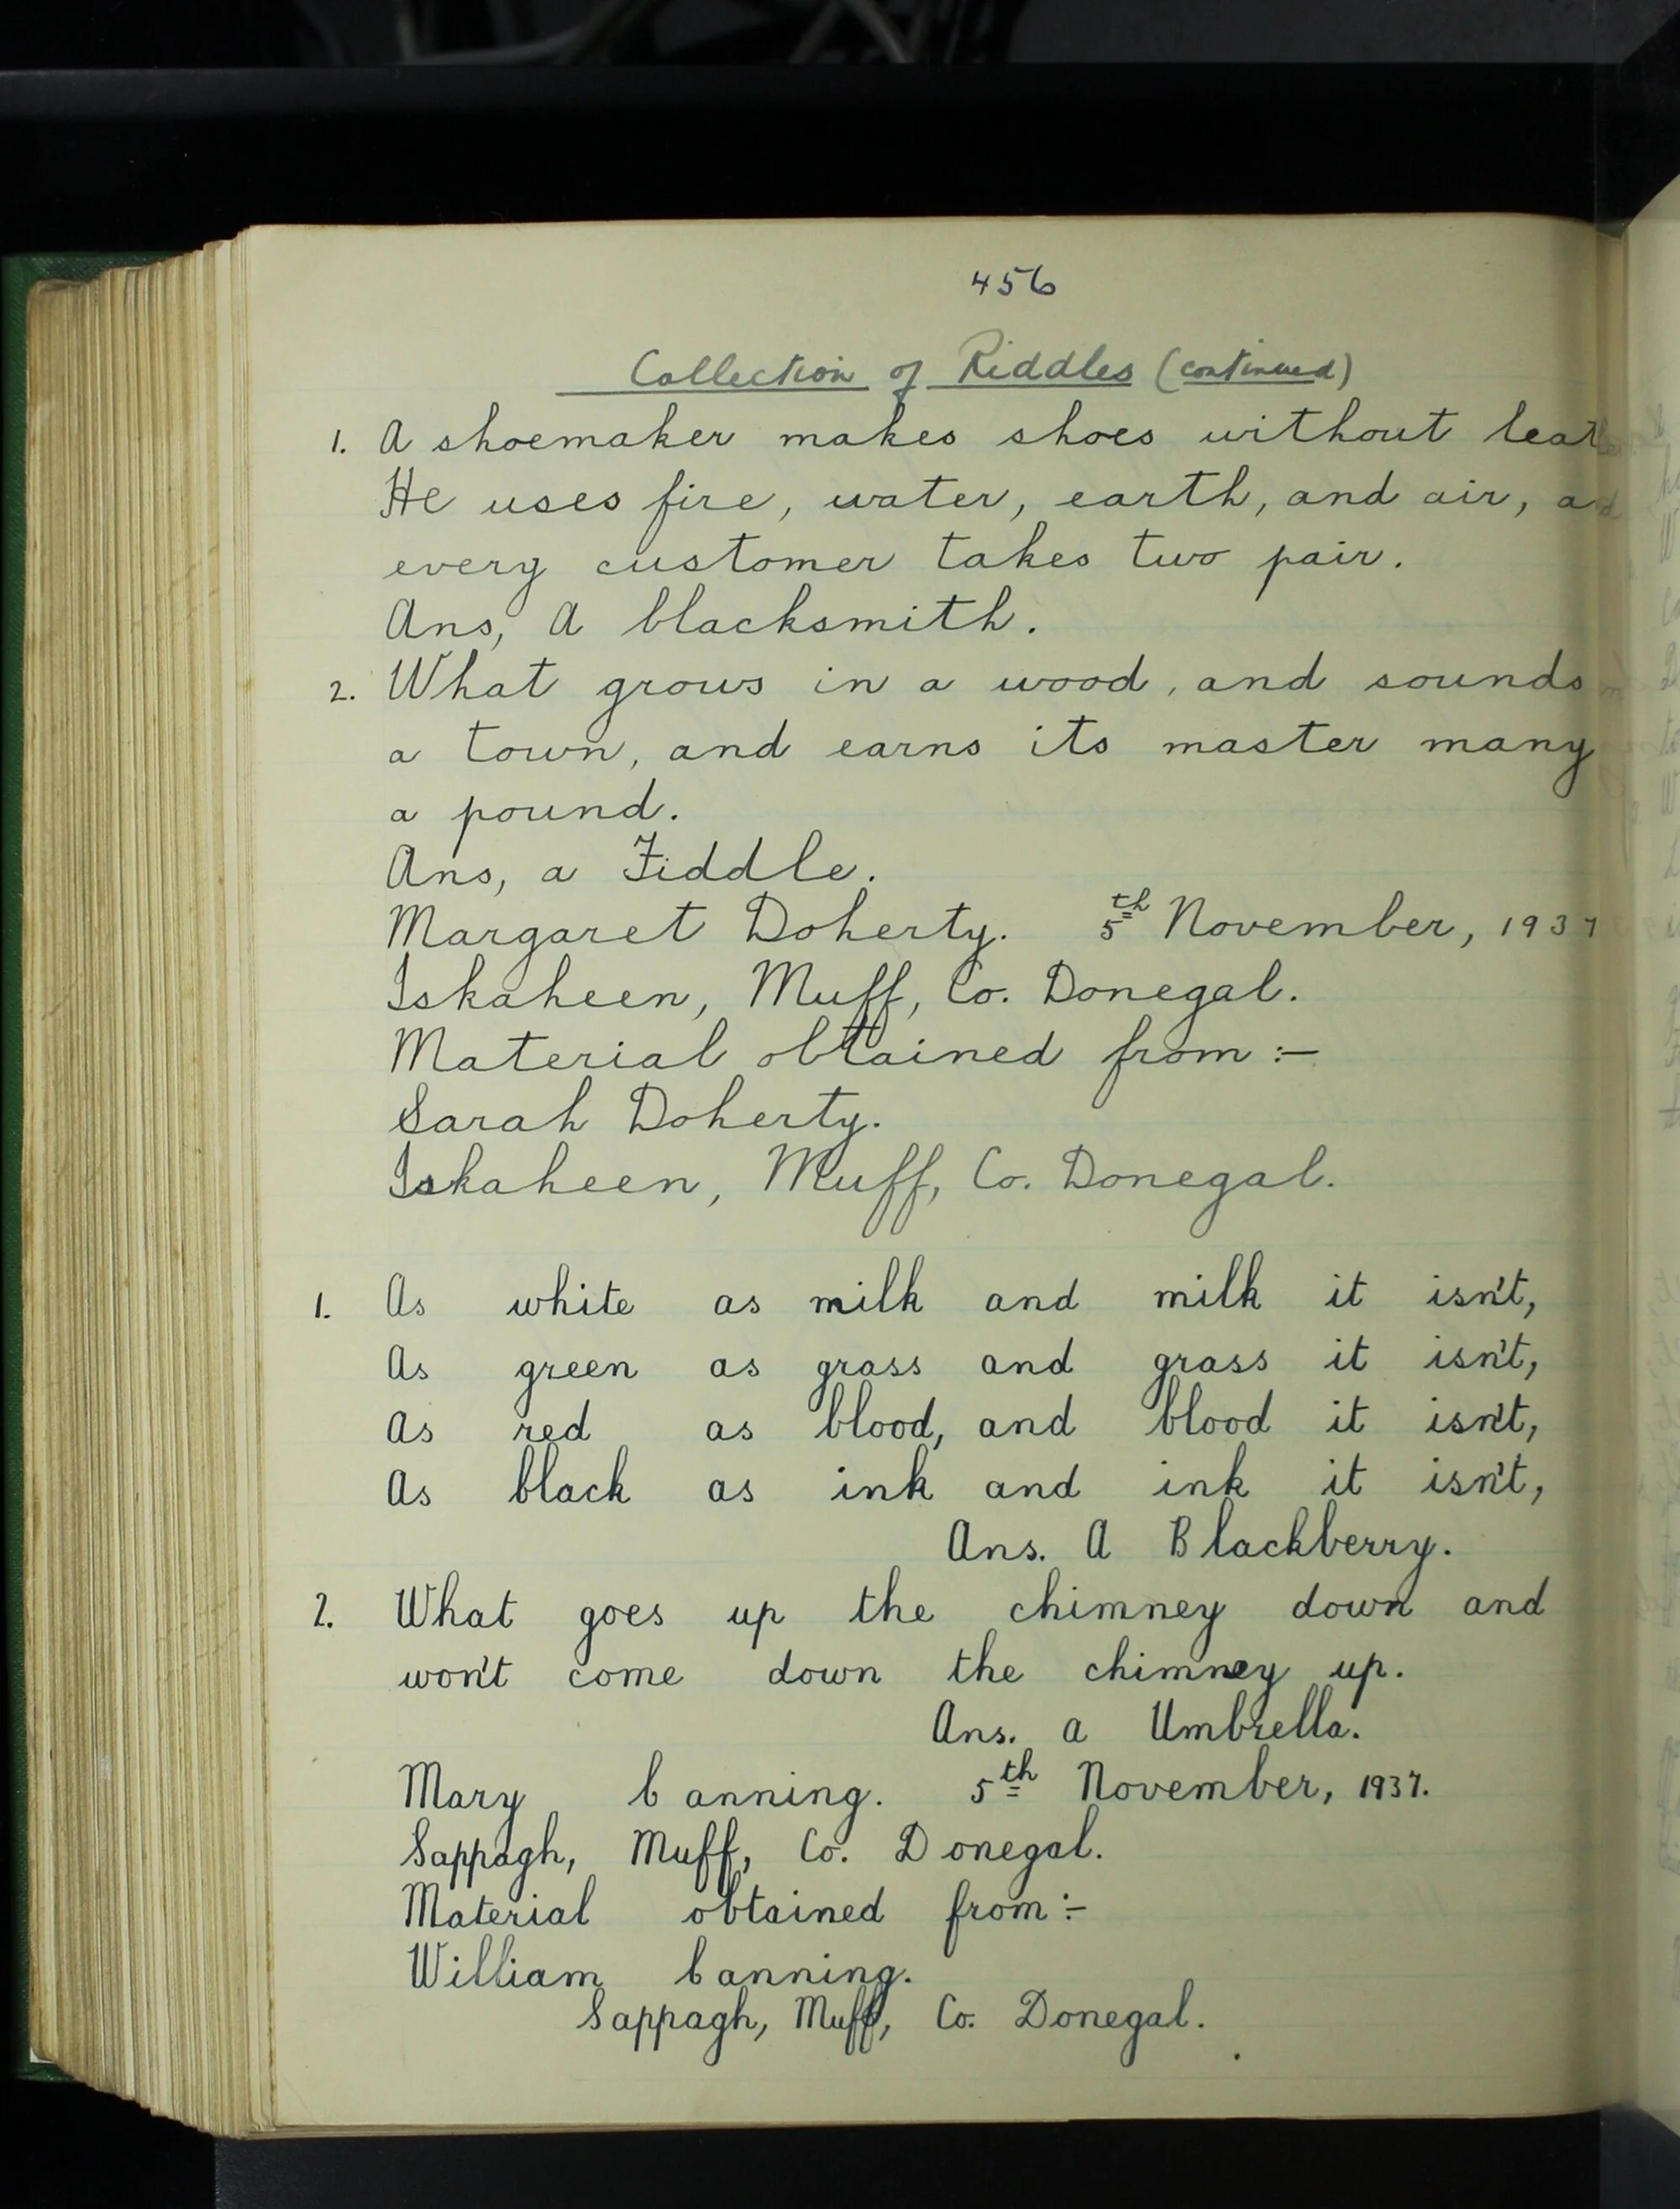 456
Collection of Riddles (continued)
1. A shoemaker makes shoes without
He uses fire, water, earth, and air, and
every customer takes two pair.
Ans, A blacksmith.
2. What grows in a wood, and sounds
a town, and earns its master many
a pound.
Ans, a Fiddle.
Margaret Doherty. 5th November, 1937
Iskaheen, Muff, Co. Donegal.
Material obtained from :-
Sarah Doherty.
Iskaheen, Muff, Co. Donegal.
1. As white as milk and milk it isn't,
As green as grass and grass it isn't,
As red as blood, and blood it isn't,
As black as ink and ink it isn't,
Ans. A Blackberry.
2. What goes up the chimney down and
won't come down the chimney up.
Ans. a Umbrella.
Mary Canning. 5th November, 1937.
Sappagh, Muff, Co. Donegal.
Material obtained from :-
William Canning.
Sappagh, Muff, Co. Donegal.